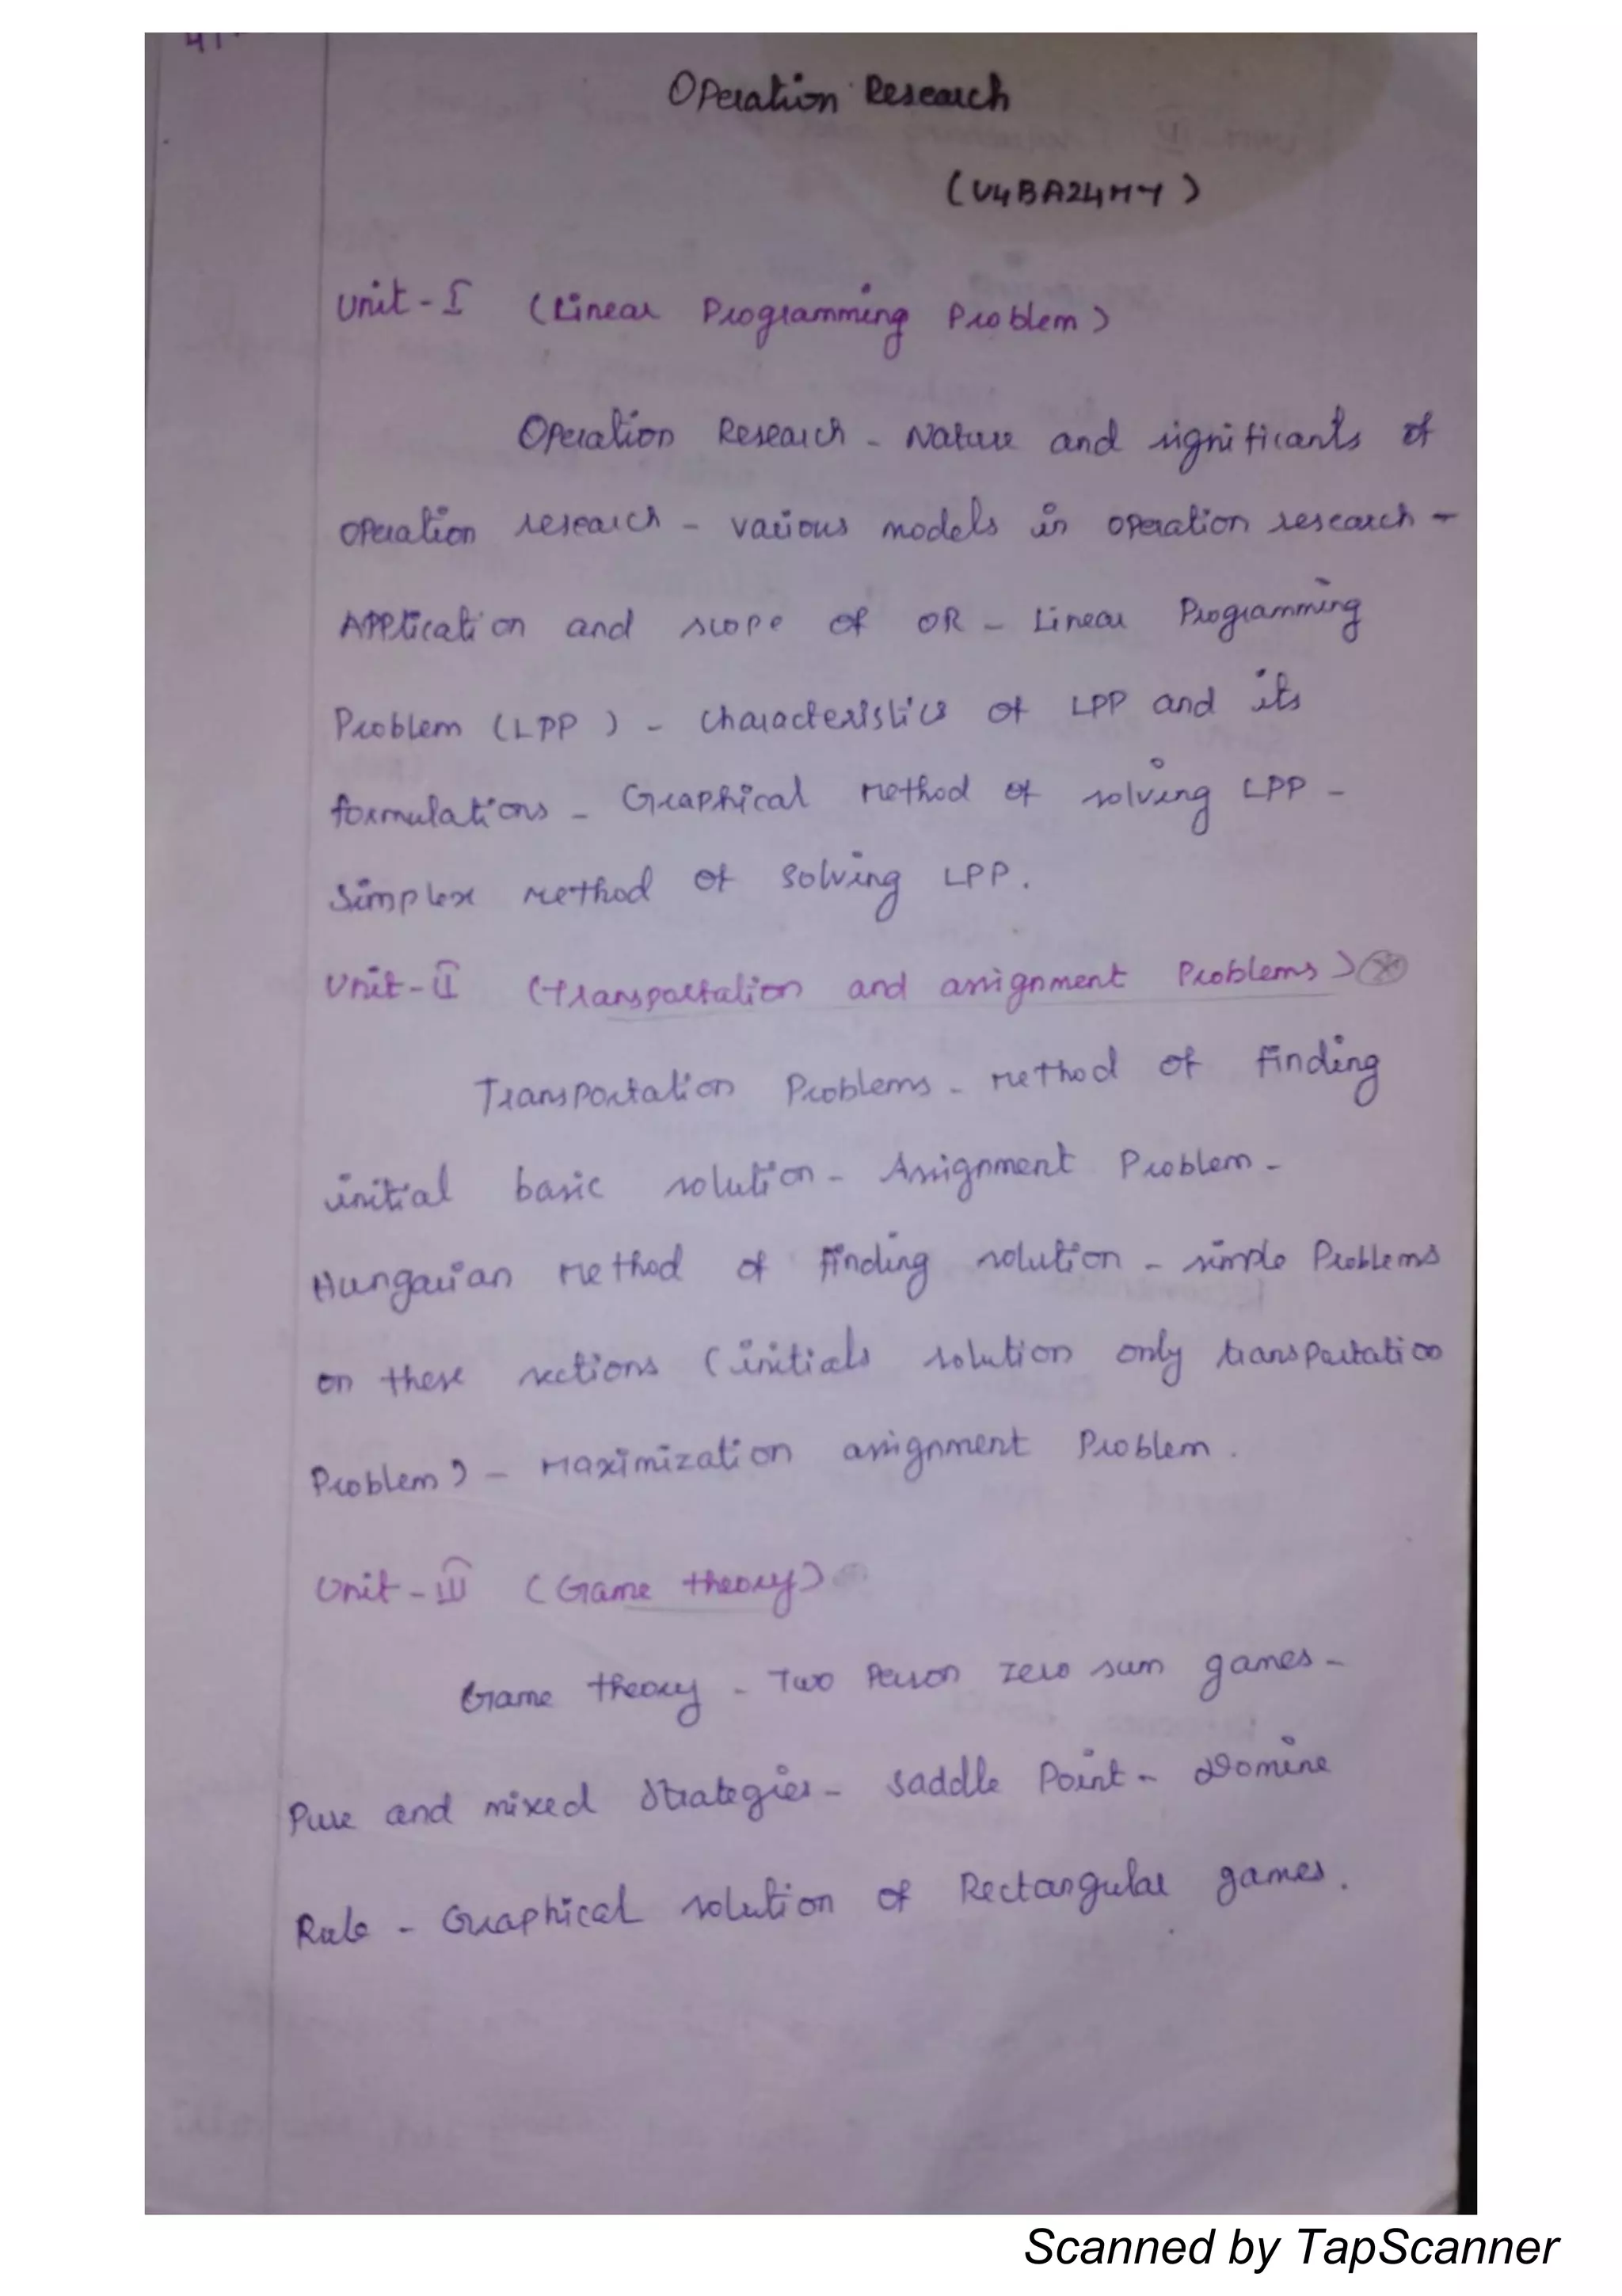 Operation Research
(U4BA24MY)
Unit - I (Linear Programming Problem)
Operation Research - Nature and significants of
operation research - various models in operation research -
Application and scope of OR - Linear Programming
Problem (LPP) - Characteristics of LPP and its
formulations - Graphical method of solving LPP -
Simplex method of solving LPP.
Unit - II (Transportation and assignment Problems)
Transportation Problems - method of finding
initial basic solution - Assignment Problem -
Hungarian method of finding solution - simple Problems
on these sections (initials solution only transportation
Problem) - Maximization assignment Problem.
Unit - III (Game theory)
Game theory - Two Person zero sum games -
Pure and mixed Strategies - Saddle Point - Domine
Rule - Graphical solution of Rectangular games.
Scanned by TapScanner